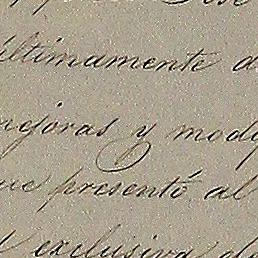 Ultimamente d
mejoras y modi
que presentó al
exclusiva de